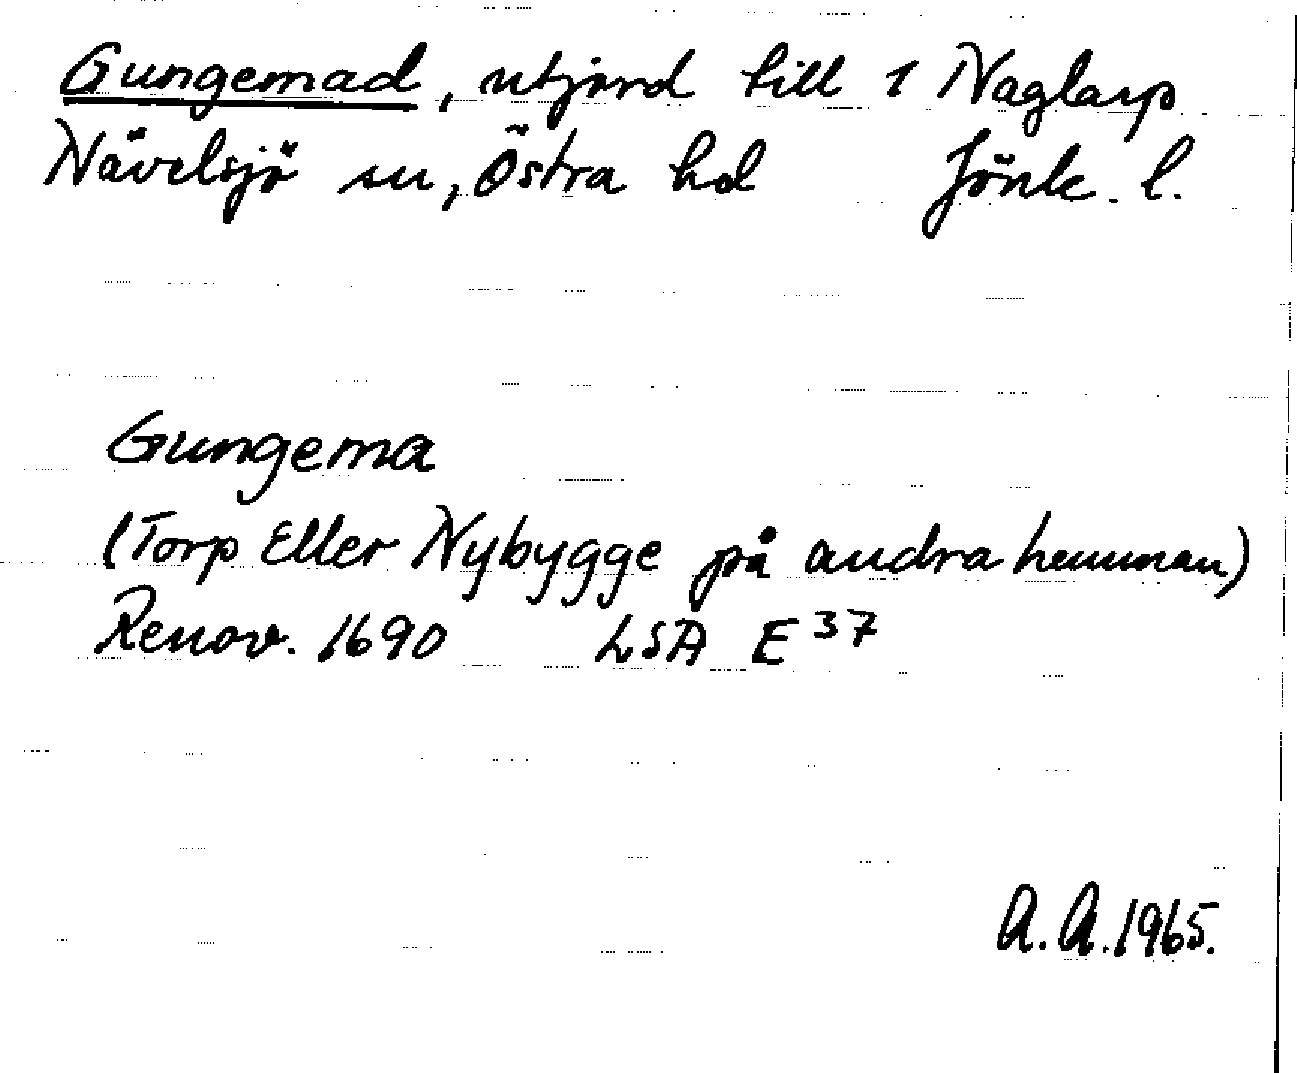 Gungemad, utjord till 1 Naglarp
Nävelsjö sn, Östra hd Jönk. l.
Gungema
(Torp Eller Nybygge på andra hemman)
Renov. 1690 LSA E 37
A. A. 1965.